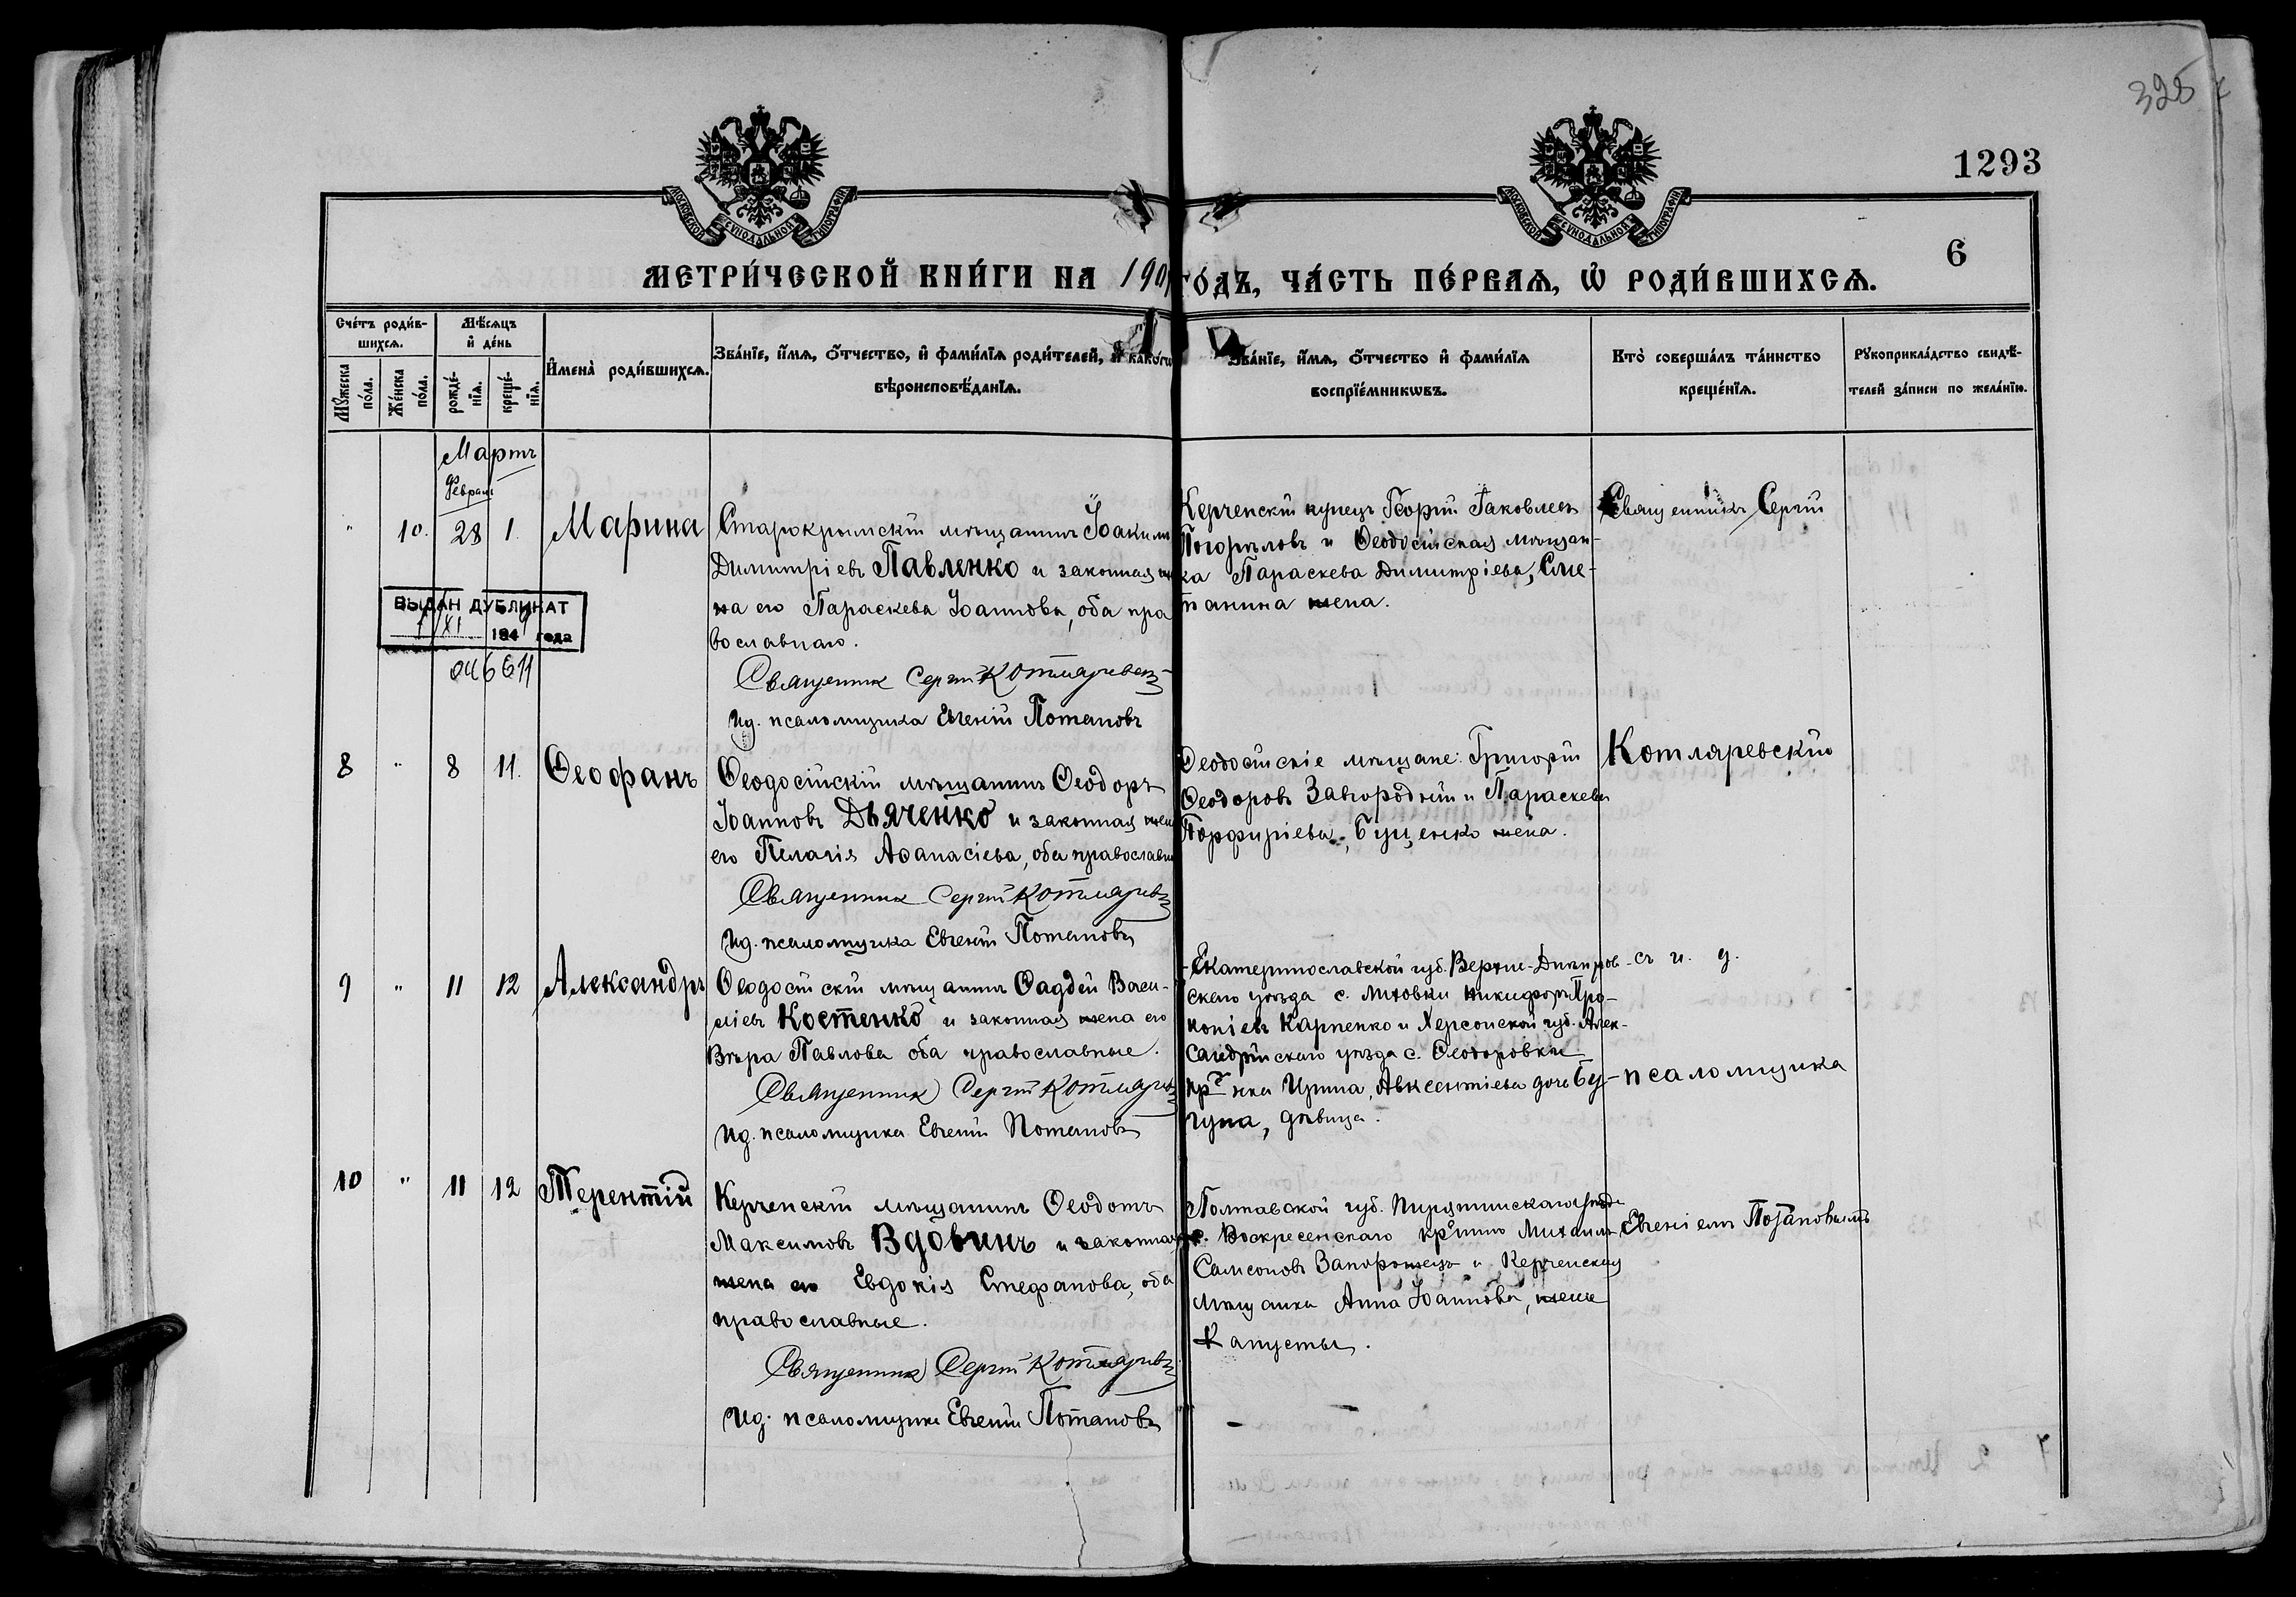 325
1293
6
МОСКОВСКОЙ СУНОДАЛЬНОЙ ТИПОГРАФІИ
МОСКОВСКОЙ СУНОДАЛЬНОЙ ТИПОГРАФІИ
МЕТРИ́ЧЕСКОЙ КНИ́ГИ НА 190 ГО́ДЪ, ЧА́СТЬ ПЕ́РВАѦ, Ѡ҆ РОДИ́ВШИХСѦ.
Сче́тъ роди́в-
шихсѧ.
Мѣ́сѧцъ
и҆ де́нь
Мꙋ́жеска по́ла.
Же́нска по́ла.
рожде́-
нїѧ.
креще́-
нїѧ.
И҆мена̀ роди́вшихсѧ.
Зва́нїе, и҆́мѧ, ѻ҆́тчество, и҆ фами́лїѧ роди́телей, и҆ како́гѡ
вѣроисповѣ́данїѧ.
Зва́нїе, и҆́мѧ, ѻ҆́тчество и҆ фами́лїѧ
воспрїе́мникѡвъ.
Кто̀ соверша́лъ та́инство
креще́нїѧ.
Рꙋкоприкла́дство свидѣ́-
телей за́писи по жела́нїю.
Мартъ
Феврал
" 10. 28 1. Марина
Старокрымскій мѣщанинъ Іоакимъ
Димитріевъ Павленко и законная же
на его Параскева Іоаннова, оба пра
вославнаго.
Священник Сергій Котляревск
Ид. псаломщика Евгеній Потаповъ
Керченскій купецъ Георгій Іаковлевъ
Погорѣловъ и Ѳеодосійская мѣщан-
ка Параскева Димитріева, Сме-
танина жена.
Священникъ Сергій
ВЫДАН ДУБЛИКАТ
1/XI 194 года
046611
8 " 8 11. Ѳеофанъ
Ѳеодосійскій мѣщанинъ Ѳеодоръ
Іоанновъ Дьяченко и законная жен
его Пелагія Аѳанасіева, оба православн
Священник Сергій Котляревск
Ид. псаломщика Евгеній Потаповъ
Ѳеодосійскіе мѣщане: Григорій
Ѳеодоровъ Завгородній и Параскева
Порфиріева, Буценко жена.
Котляревскій
9 " 11 12 Александръ
Ѳеодосійскій мѣщанинъ Ѳаддей Васи-
ліевъ Костенко и законная жена его
Вѣра Павлова оба православные.
Священник Сергій Котляревск
Ид. псаломщика Евгеній Потаповъ
Екатеринославской губ. Верхне-Днѣпров-
скаго уѣзда с. Лиховки Никифоръ Про-
копіевъ Карпенко и Херсонской губ. Алек-
сандрійскаго уѣзда с. Ѳеодоровки
кр-нка Ирина, Авксентіева дочь Бу-
гуна, дѣвица.
съ и. д.
псаломщика
10 " 11 12 Терентій
Керченскій мѣщанинъ Ѳеодотъ
Максимовъ Вдовинъ и законная
жена его Евдокія Стефанова, оба
православные.
Священник Сергій Котляревск
Ид. псаломщика Евгеній Потаповъ
Полтавской губ. Пирятинскаго уѣзда
с. Воскресенскаго кр-нинъ Михаилъ
Самсоновъ Запорожецъ и Керченская
мѣщанка Анна Іоаннова, жена
Капусты.
Евгеніемъ Потаповымъ